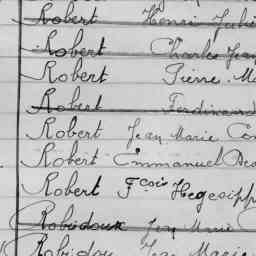 Robert Henri Jules
Robert Charles Jean
Robert Pierre
Robert Ferdinand
Robert Jean Marie
Robert Emmanuel
Robert Fçois Hegesipp
Robidoux Jean Marie
Robidou Jean Marie